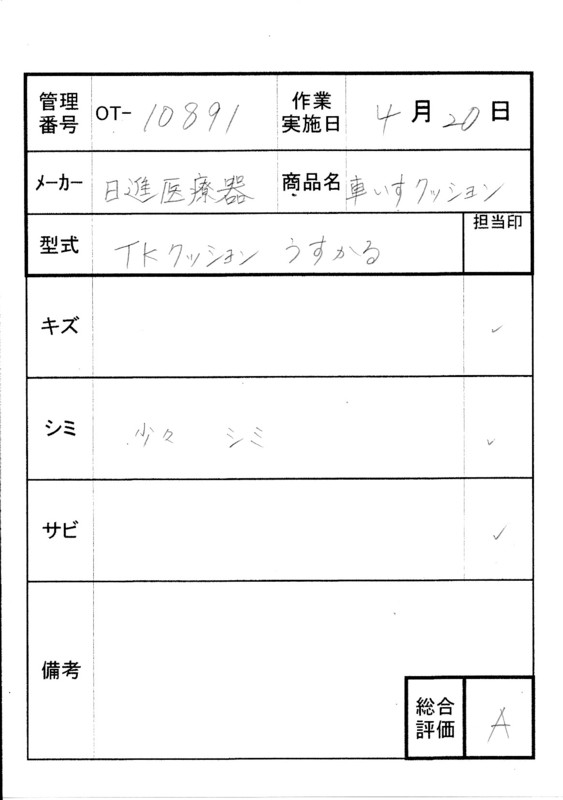 管理番号 OT- 10891 作業実施日 4月20日
メーカー 日進医療器 商品名 車いすクッション
型式 TKクッション うすかる 担当印
キズ ✓
シミ 少々 シミ ✓
サビ ✓
備考
総合評価 A